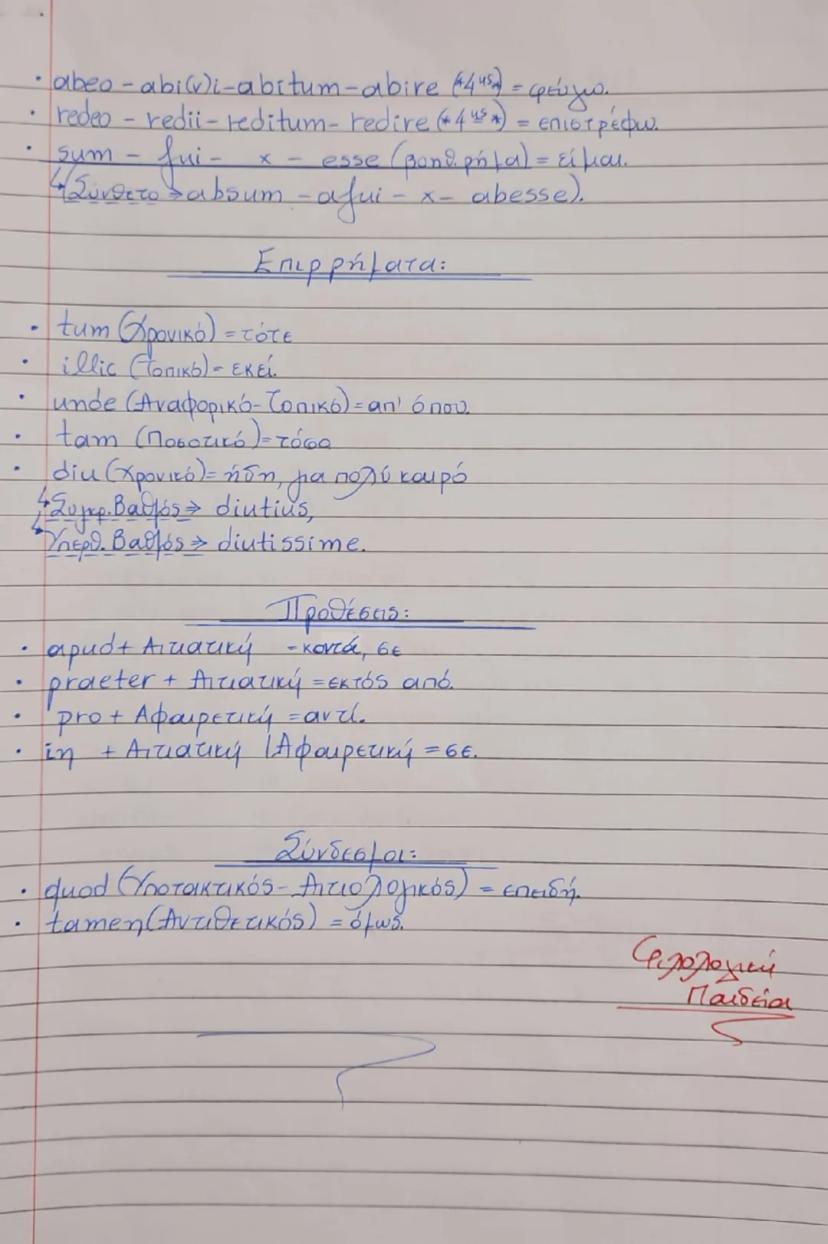 • abeo - abi(v)i - abitum - abire (*4ης*) = φεύγω.
• redeo - redii - reditum - redire (*4ης*) = επιστρέφω.
• sum - fui - x - esse (βοηθ. ρήμα) = είμαι.
↳(Σύνθετο → absum - afui - x - abesse).
Επιρρήματα:
• tum (Χρονικό) = τότε
• illic (Τοπικό) = εκεί.
• unde (Αναφορικό - Τοπικό) = απ' όπου.
• tam (Ποσοτικό) = τόσο
• diu (Χρονικό) = ήδη, για πολύ καιρό
↳Συγκρ. Βαθμός ⇒ diutius,
↳Υπερθ. Βαθμός ⇒ diutissime.
Προθέσεις:
• apud + Αιτιατική - κοντά, σε
• praeter + Αιτιατική = εκτός από.
• pro + Αφαιρετική = αντί.
• in + Αιτιατική / Αφαιρετική = σε.
Σύνδεσμοι:
• quod (Υποτακτικός - Αιτιολογικός) = επειδή.
• tamen (Αντιθετικός) = όμως.
Φιλολογική
Παιδεία